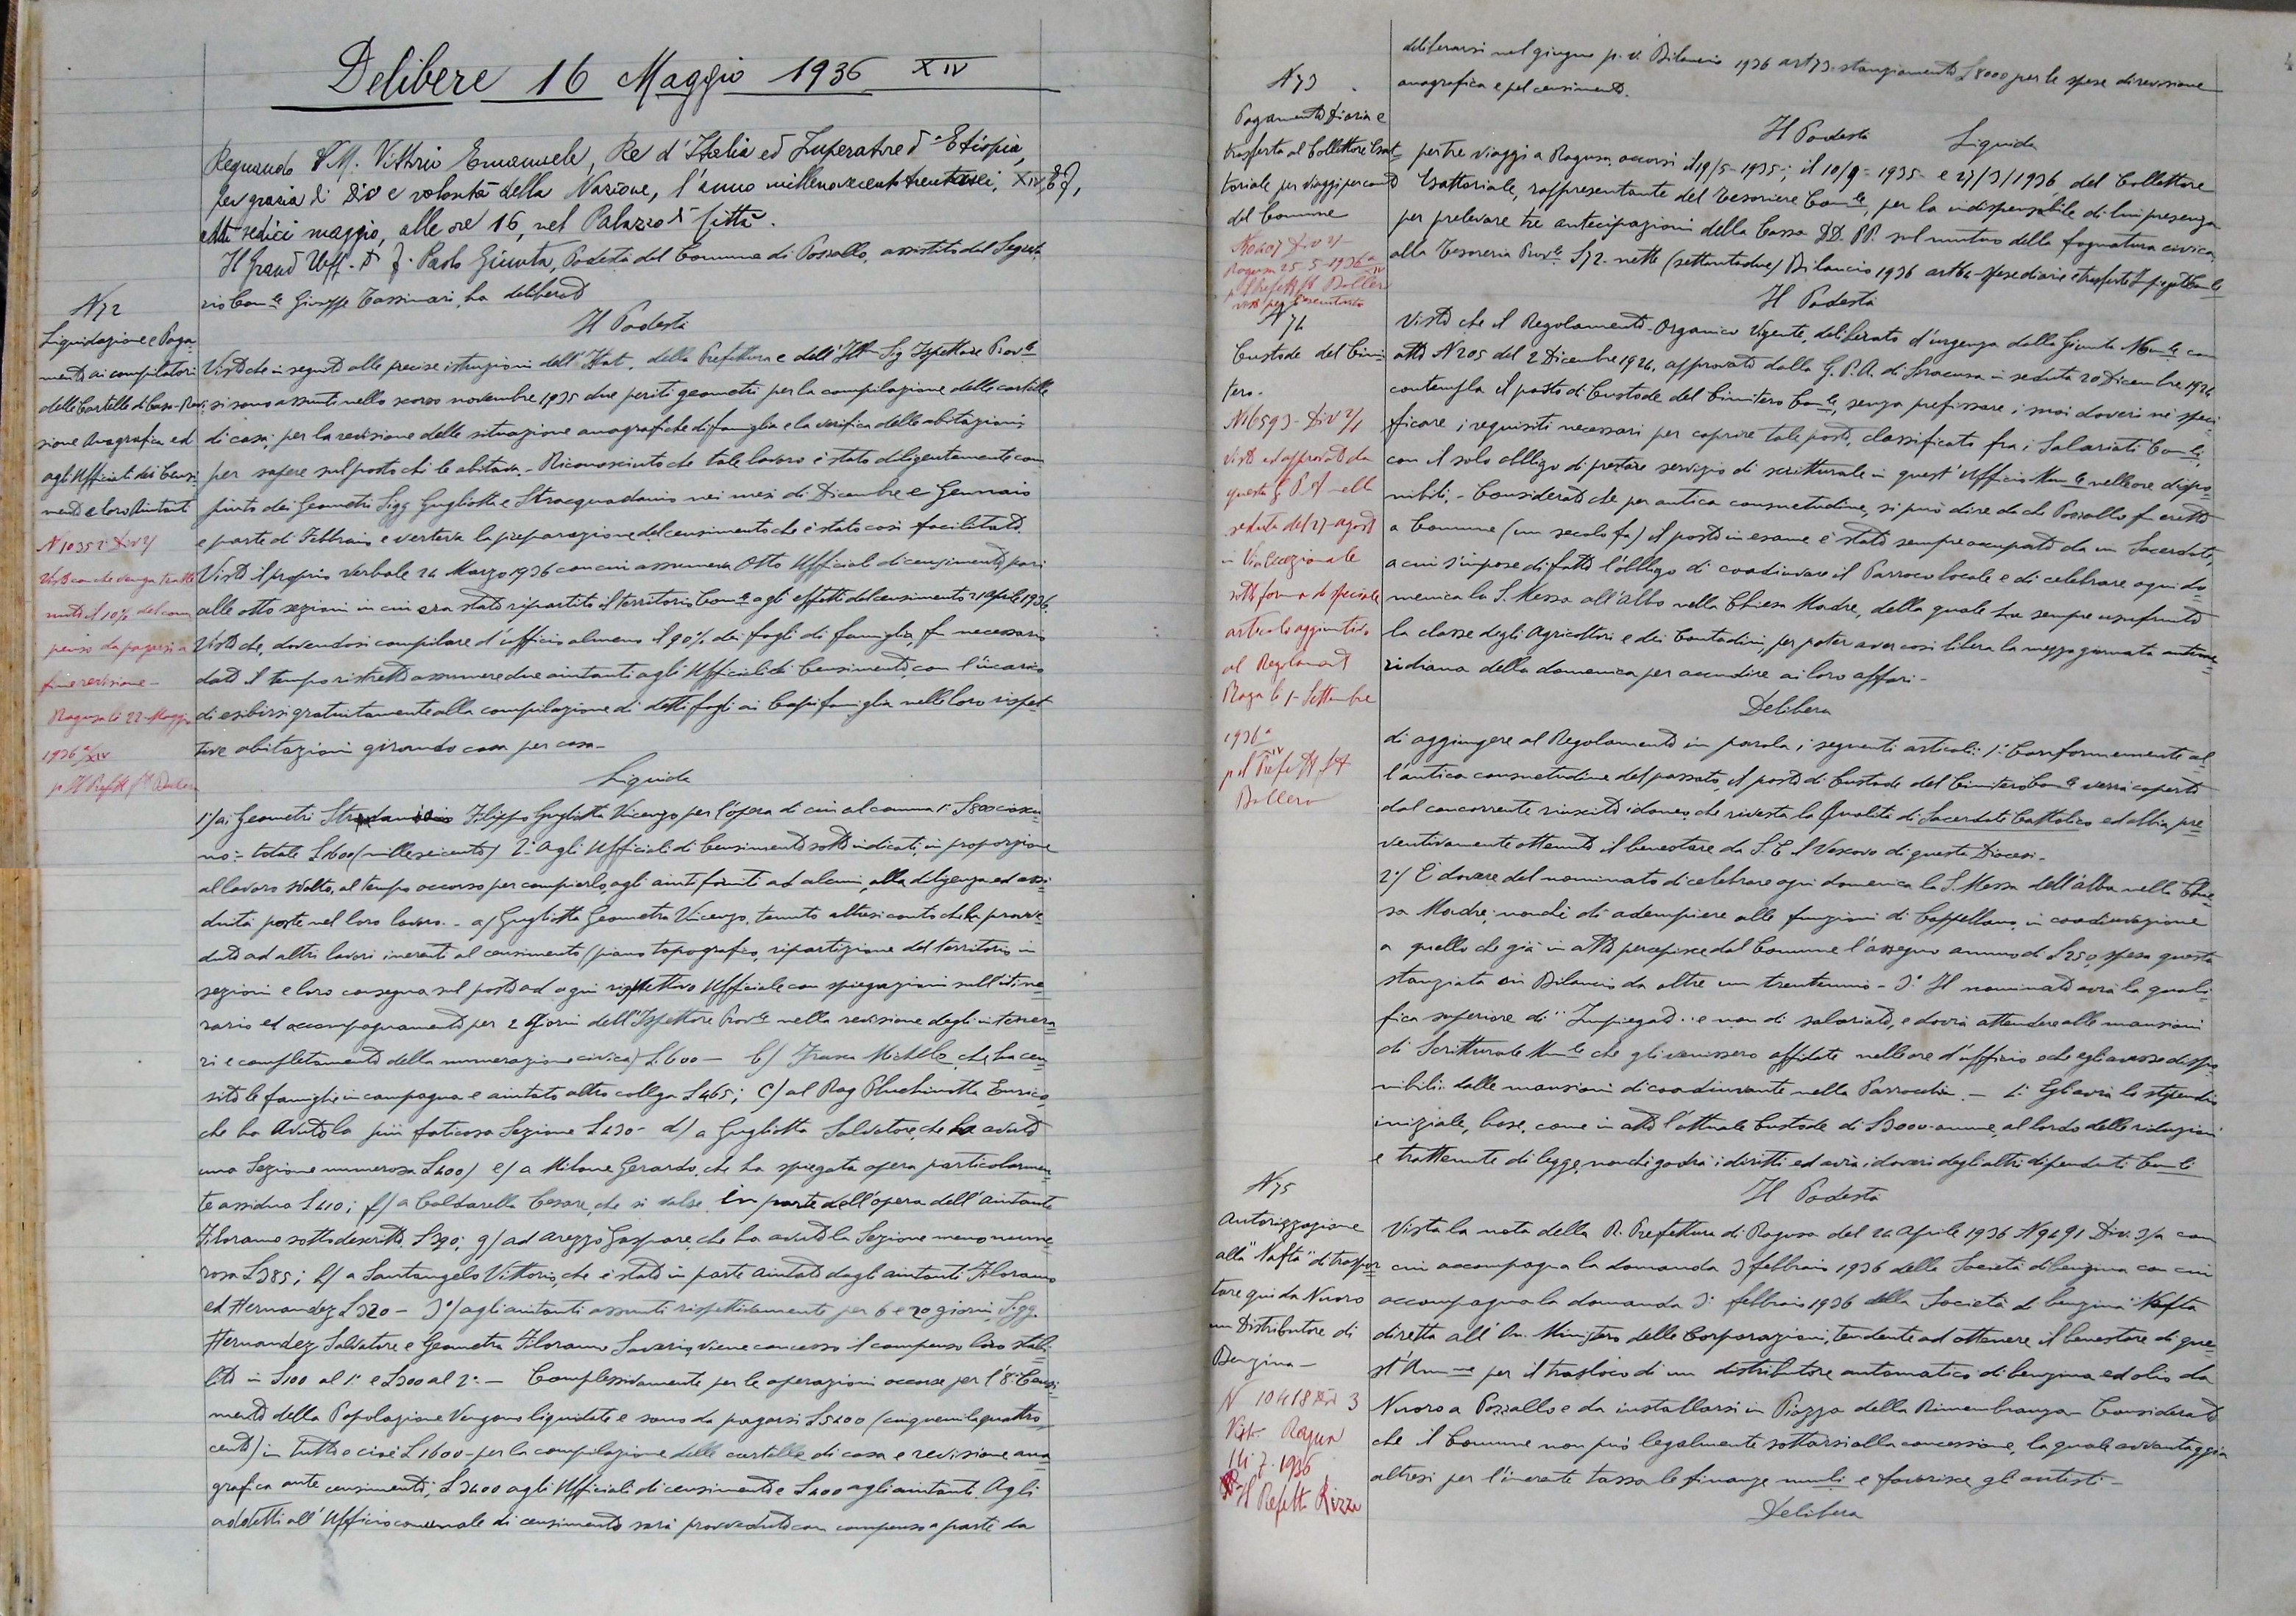 Delibere 16 Maggio 1936 XIV
Regnando S.M. Vittorio Emanuele, Re d'Italia ed Imperatore d'Etiopia,
per grazia di Dio e volontà della Nazione, l'anno millenovecentotrentasei, XIV E.F.,
addì sedici maggio, alle ore 16, nel Palazzo di Città.
Il Grand Uff. Paolo Giunta, Podestà del Comune di Pozzallo, assistito dal Segreta
rio Comle Giuseppe Tassinari, ha deliberato
N 72
Liquidazione e Paga-
mento ai compilatori
delle Cartelle di Casa-Revi
sione Anagrafica ed
agli Ufficiali dei Censi
mento e loro Aiutanti
N 10352 Div 2/
Visto con che venga tratte
nuto il 10% del com
penso da pagarsi a
fine revisione -
Ragusa li 22 Maggio
1936 a/XIV
p Il Prefetto
Il Podestà
Visto che in seguito alle precise istruzioni dell'Istat, della Prefettura e dell'Ill Sig Ispettore Provle
si sono assunti nello scorso novembre 1935 due periti geometri per la compilazione delle cartelle
di casa; per la revisione delle situazione anagrafiche di famiglia e la verifica delle abitazioni,
per sapere sul posto chi le abitava. - Riconosciuto che tale lavoro è stato diligentemente com
piuto dai Geometri Sigg Gugliotta e Stracquadanio nei mesi di Dicembre e Gennaio
e parte di Febbraio e verteva la preparazione del censimento che è stato così facilitato.
Visto il proprio verbale 24 Marzo 1936 con cui assumeva Otto Ufficiali di censimento, pari
alle otto sezioni in cui era stato ripartito il territorio Comle agli effetti del censimento 21 Aprile 1936
Visto che, dovendosi compilare d'ufficio almeno il 90% dei fogli di famiglia, fu necessario
dato il tempo ristretto assumere due aiutanti agli Ufficiali di Censimento, con l'incarico
di esibirsi gratuitamente alla compilazione di detti fogli ai Capi famiglia nelle loro rispet-
tive abitazioni girando casa per casa -
Liquida
1°/ ai Geometri Filippo Gugliotta Vincenzo per l'opera di cui al comma 1° £ 800 ciascu-
no: - totale £ 1600 (milleseicento) 2° Agli Ufficiali di Censimento sotto indicati, in proporzione
al lavoro svolto, al tempo occorso per compierlo, agli aiuti forniti ad alcuni, alla diligenza ed assi-
duità poste nel loro lavoro. - a/ Gugliotta Geometra Vincenzo, tenuto altresì conto che ha provve-
duto ad altri lavori inerenti al censimento (piano topografico, ripartizione del territorio in
sezioni e loro consegna sul posto ad ogni rispettivo Ufficiale con spiegazioni sull'itine-
rario ed accompagnamento per 2 Giorni dell'Ispettore Provle nella revisione degli
ri e completamento della numerazione civica) £ 600 - b/ Frasca Michele, che ha cen-
sito le famiglie in campagna e aiutato altro collega £ 465; c/ al Rag Pluchinotta Enrico,
che ha Avuto la più faticosa Sezione £ 430 - d/ a Gugliotta Salvatore, che ha avuto
una Sezione numerosa £ 400) e/ a Milone Gerardo, che ha spiegata opera particolarmen-
te assidua £ 410; f/ a Caldarella Cesare, che si valse in parte dell'opera dell'Aiutante
Floramo sotto descritto £ 390; g/ ad Arezzo Gaspare, che ha avuto la Sezione meno nume-
rosa £ 385; h/ a Santangelo Vittorio, che è stato in parte aiutato dagli aiutanti Floramo
ed Hernandez £ 320 - 3°/ agli aiutanti assunti rispettivamente per 6 e 20 giorni, Sigg.
Hernandez Salvatore e Geometra Floramo Saverio, viene concesso il compenso loro stabi-
lito in £ 100 al 1° e £ 300 al 2° - Complessivamente per le operazioni occorse per l'8° Censi-
mento della Popolazione Vengono liquidate e sono da pagarsi £ 5400 (cinquemilaquattro
cento) in tutto e cioè £ 1600 - per la compilazione delle cartelle di casa e revisione ana-
grafica ante censimento; £ 3400 agli Ufficiali di censimento e £ 400 agli aiutanti. Agli
addetti all'Ufficio comunale di censimento sarà provveduto con compenso a parte da
deliberarsi nel giugno p.v. Bilancio 1936 art 73 - stanziamento £ 8000 per le spese di revisione
anagrafica e pel censimento.
N 73
Pagamento Diaria e
trasferta al Collettore Esat-
toriale per viaggi per conto
del Comune
Ragusa 25-5-1936
Il Podestà Liquida
per tre viaggi a Ragusa, occorsi il 19/5-1935; il 10/9-1935 e 27/3/1936 del Collettore
Esattoriale, rappresentante del Tesoriere Comle, per la indispensabile di lui presenza
per prelevare tre anticipazioni della Cassa DD. PP. sul mutuo della fognatura civica,
alla Tesoreria Provle £ 72 - nette (settantadue) Bilancio 1936 art 64 - spese diarie e trasferte Impiegati Comli
N 74
Custode del Cimi
tero.
N 16593 - Div 2/1
Visto ed approvato da
questa G P A nella
seduta del 27 agosto
in Via Eccezionale
sotto forma di speciale
articolo aggiuntivo
al Regolamento
Ragusa li 1 - Settembre
1936 a XIV
p il Prefetto
Bollero
Il Podestà
Visto che il Regolamento - Organico Vigente, deliberato d'urgenza dalla Giunta Munle con
atto N 205 del 2 Dicembre 1924, approvato dalla G. P. A. di Siracusa in seduta 20 Dicembre 1924
contempla il posto di Custode del Cimitero Comle, senza prefissare i suoi doveri nè speci-
ficare i requisiti necessari per coprire tale posto, classificato fra i Salariati Comli,
con il solo obbligo di prestare servizio di scritturale in quest'Ufficio Munle nelle ore dispo-
nibili. - Considerato che per antica consuetudine, si può dire da che Pozzallo fu eretto
a Comune (un secolo fa) il posto in esame è stato sempre occupato da un Sacerdote,
a cui s'impose di fatto l'obbligo di coadiuvare il Parroco locale e di celebrare ogni do-
menica la S. Messa all'Alba nella Chiesa Madre, della quale ha sempre usufruito
la classe degli Agricoltori e dei Contadini, per poter aver così libera la mezza giornata antime-
ridiana della domenica per accudire ai loro affari -
Delibera
di aggiungere al Regolamento in parola i seguenti articoli: 1° Conformemente al-
l'antica consuetudine del passato, il posto di Custode del Cimitero Comle verrà coperto
dal concorrente riuscito idoneo, che rivesta la Qualità di Sacerdote Cattolico ed abbia pre-
ventivamente ottenuto il benestare da S.E. il Vescovo di questa Diocesi -
2°/ È dovere del nominato di celebrare ogni domenica la S. Messa dell'alba nella Chie-
sa Madre; nonchè di adempiere alle funzioni di Cappellano, in coadiuvazione
a quello che già in atto percepisce dal Comune l'assegno annuo di £ 250, spesa questa
stanziata in Bilancio da oltre un trentennio - 3° Il nominato avrà la quali-
fica superiore di "Impiegato" e non di salariato, e dovrà attendere alle mansioni
di Scritturale Munle che gli venissero affidate nelle ore d'ufficio e che egli avesse dispo-
nibili dalle mansioni di coadiuvante nella Parrocchia. - 4° Egli avrà lo stipendio
iniziale, base, come in atto l'attuale Custode di £ 3000 - annue, al lordo delle riduzioni
e trattenute di legge, nonchè godrà i diritti ed avrà i doveri degli altri dipendenti Comli
N 75
Autorizzazione
alla "Nafta" di traspor-
tare qui da Nuoro
un Distributore di
Benzina -
N 10418 Div 3
Visto Ragusa
li 7.1936
Il Prefetto Rizza
Il Podestà
Vista la nota della R. Prefettura di Ragusa del 24 Aprile 1936 N 9491 Div. 3/a con
cui accompagna la domanda 3 febbraio 1936 della Società di benzina con cui
accompagna la domanda 3 febbraio 1936 della Società di benzina Nafta
diretta all'On. Ministero delle Corporazioni, tendente ad ottenere il benestare di que-
st'Amm.ne per il trasloco di un distributore automatico di benzina ed olio da
Nuoro a Pozzallo e da installarsi in Piazza della Rimembranza - Considerato
che il Comune non può legalmente sottrarsi alla concessione, la quale avvantaggia
altresì per l'inerente tassa le finanze munli e favorisce gli autisti -
Delibera